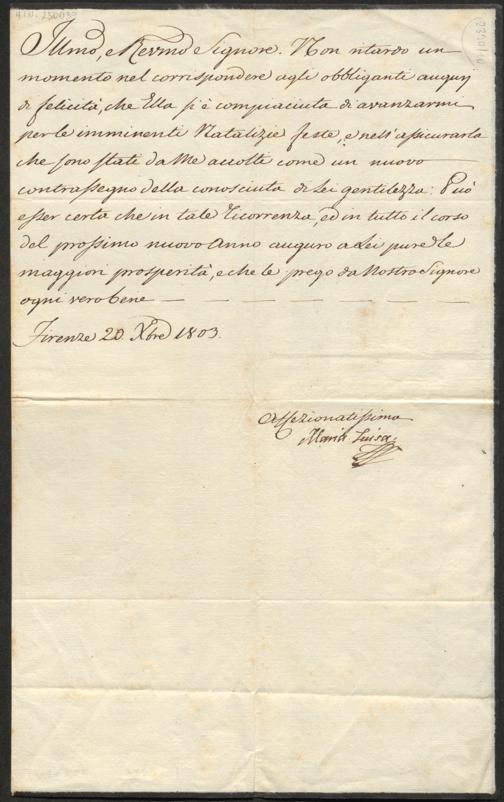 Illmo, e Revmo Signore. Non ritardo un
momento nel corrispondere agli obbliganti augurj
di felicità, che Ella si è compiaciuta di avanzarmi
per le imminenti Natalizie feste, e nell'assicurarla
che sono stati da Me accolti come un nuovo
contrassegno della conosciuta di Lei gentilezza: Può
esser certa che in tale ricorrenza, ed in tutto il corso
del prossimo nuovo Anno auguro a Lei pure le
maggiori prosperità, e che le prego da Nostro Signore
ogni vero bene — — — — — — —
Firenze 20 Xbre 1803.
Affezionatissima
Maria Luisa